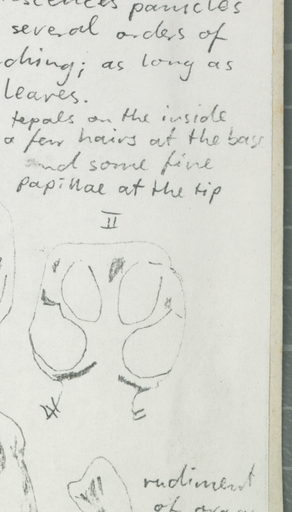 panicles
several orders of
ching; as long as
leaves.
tepals on the inside
a few hairs at the base
and some fine
papillae at the tip
II
rudiment
of